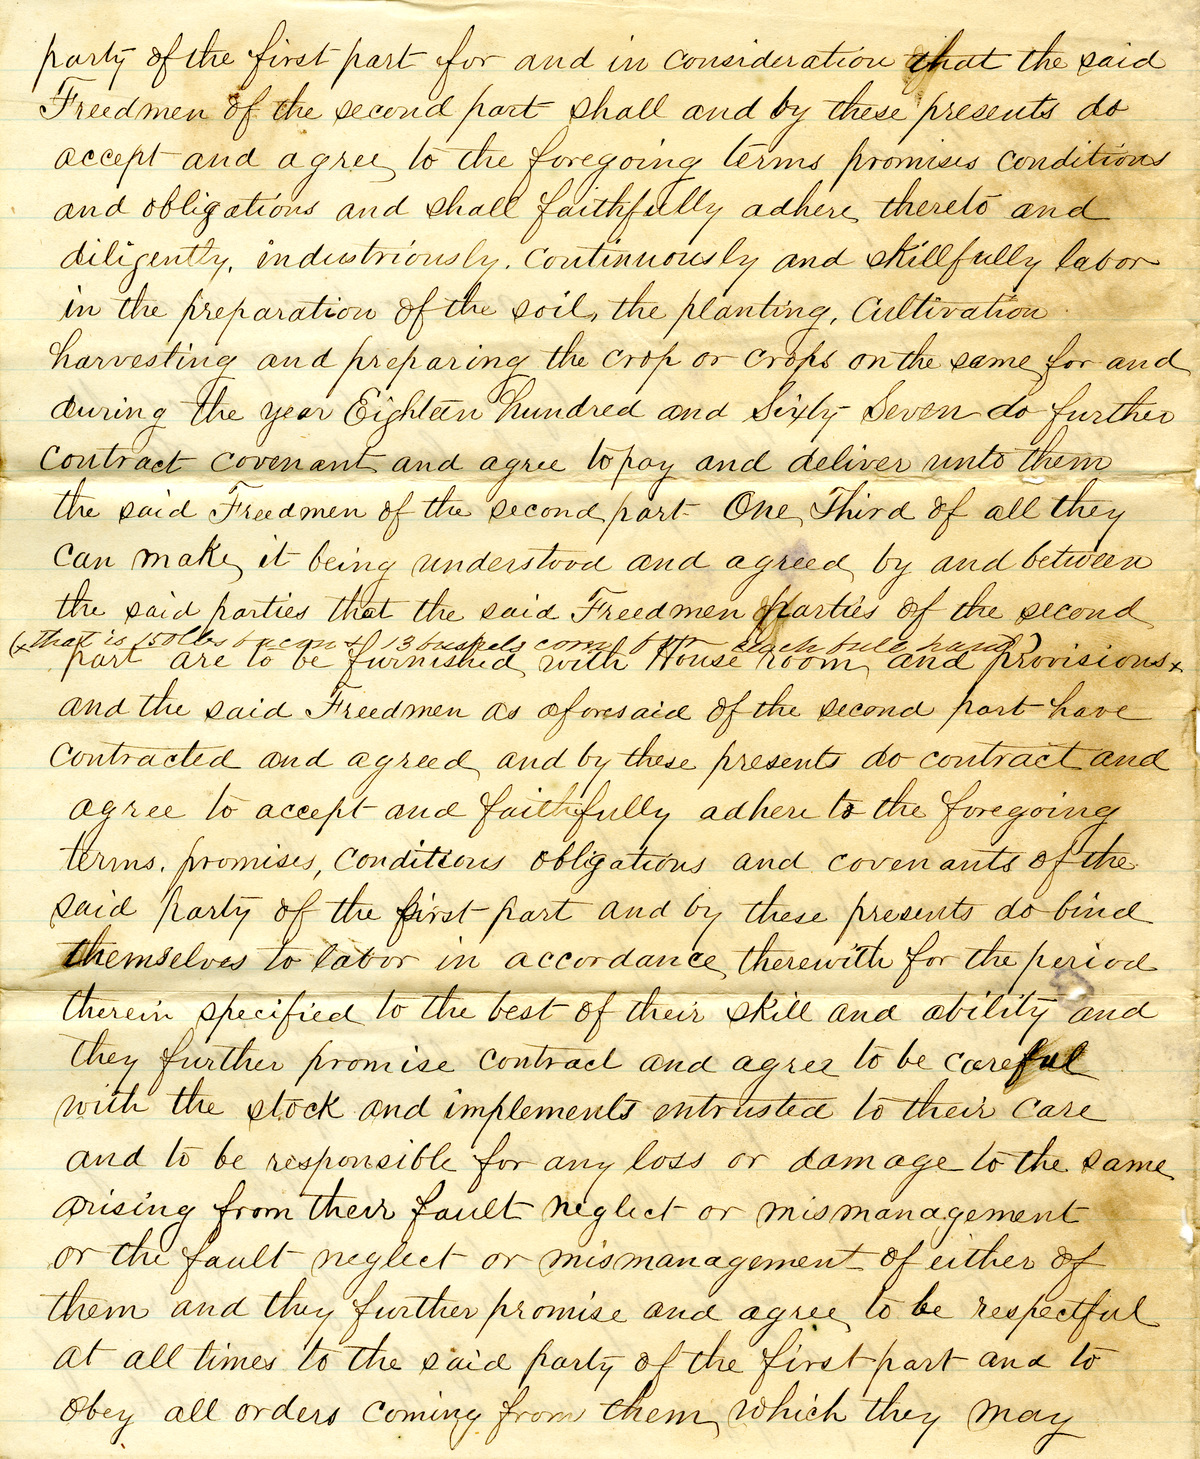 party of the first part for and in consideration that the said
Freedmen of the second part shall and by these presents do
accept and agree to the foregoing terms promises conditions
and obligations and shall faithfully adhere thereto and
diligently, industriously, continuously and skillfully labor
in the preparation of the soil, the planting, Cultivation
harvesting and preparing the crop or crops on the same for and
during the year Eighteen hundred and Sixty Seven do further
contract covenant and agree to pay and deliver unto them
the said Freedmen of the second part One Third of all they
can make, it being understood and agreed by and between
the said parties that the said Freedmen parties of the second
(x that is 150 lbs bacon & 13 bushels corn for each full hand)
part are to be furnished with House room and provisions x
and the said Freedmen as aforesaid of the second part have
contracted and agreed and by these presents do contract and
agree to accept and faithfully adhere to the foregoing
terms, promises, conditions obligations and covenants of the
said party of the first part and by these presents do bind
themselves to labor in accordance therewith for the period
therein specified to the best of their skill and ability and
they further promise contract and agree to be careful
with the stock and implements entrusted to their care
and to be responsible for any loss or damage to the same
arising from their fault neglect or mismanagement
or the fault neglect or mismanagement of either of
them and they further promise and agree to be respectful
at all times to the said party of the first part and to
obey all orders coming from them which they may